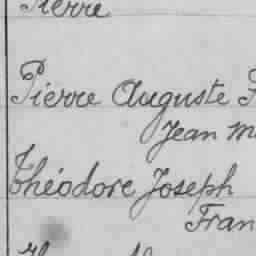 Pierre
Pierre Auguste
Jean
Théodore Joseph
Fran